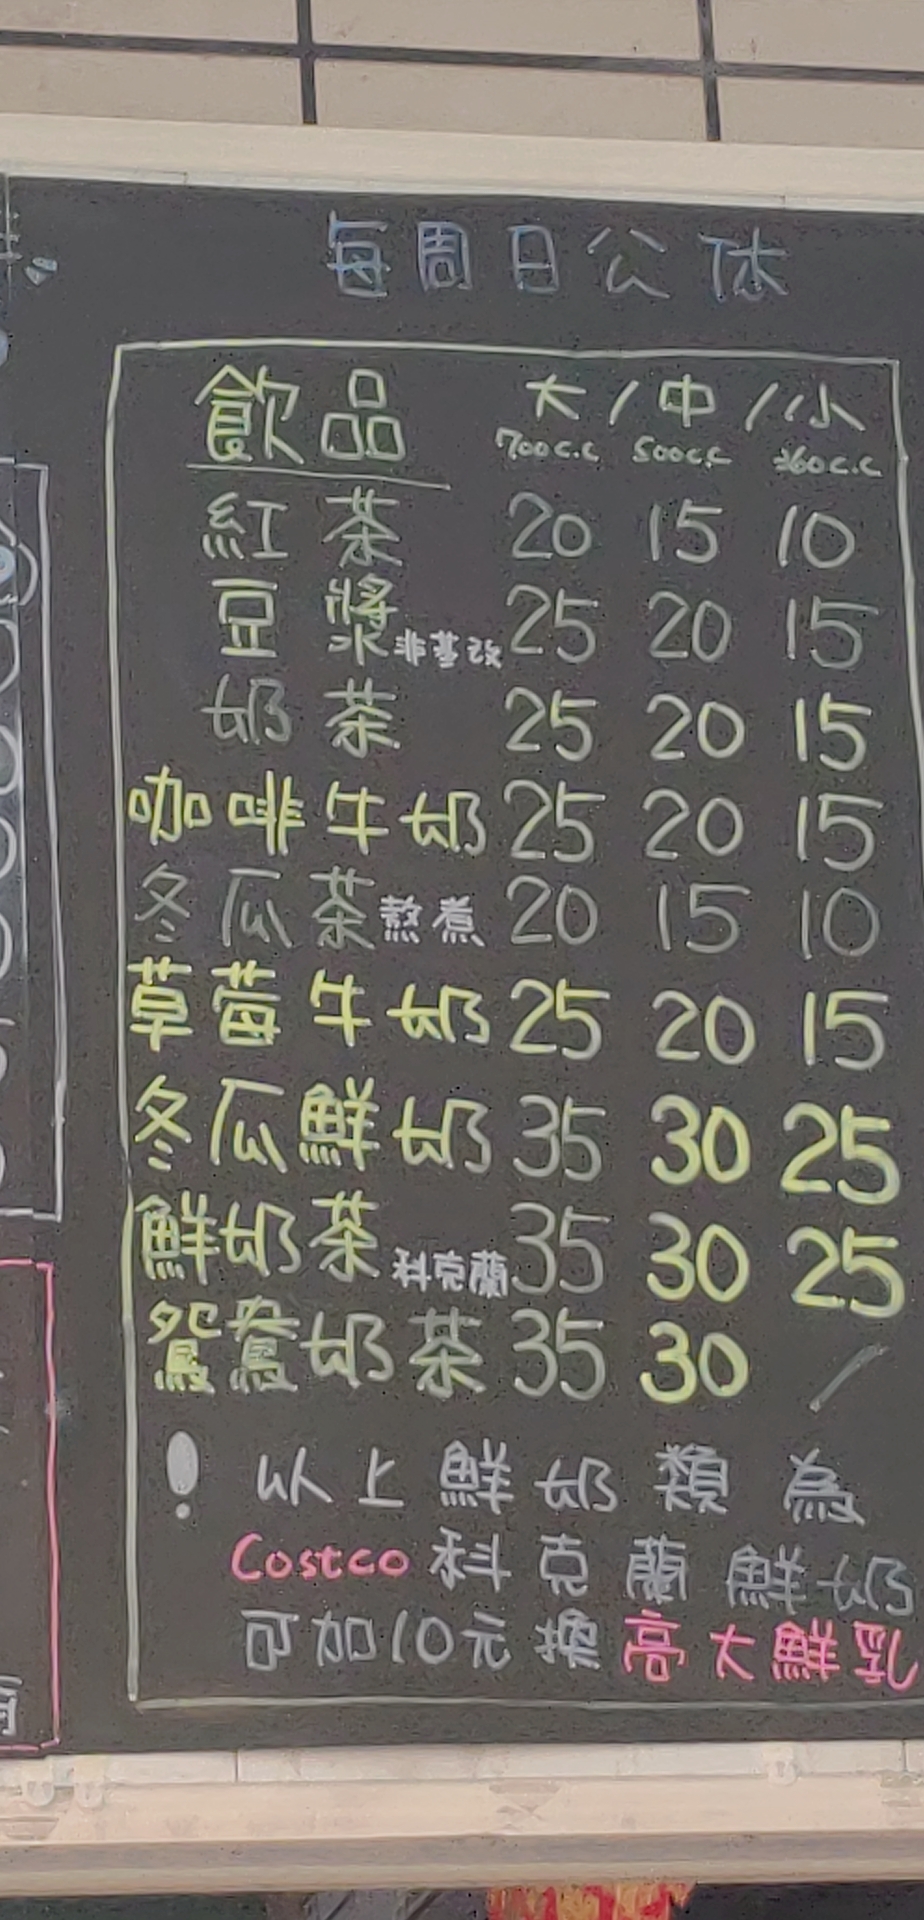 每周日公休
飲品 大/中/小
700c.c 500c.c 360c.c
紅茶 20 15 10
豆漿 非基改 25 20 15
奶茶 25 20 15
咖啡牛奶 25 20 15
冬瓜茶 熬煮 20 15 10
草莓牛奶 25 20 15
冬瓜鮮奶 35 30 25
鮮奶茶 科克蘭 35 30 25
鴛鴦奶茶 35 30 /
! 以上鮮奶類為
Costco 科克蘭鮮奶
可加10元換高大鮮乳